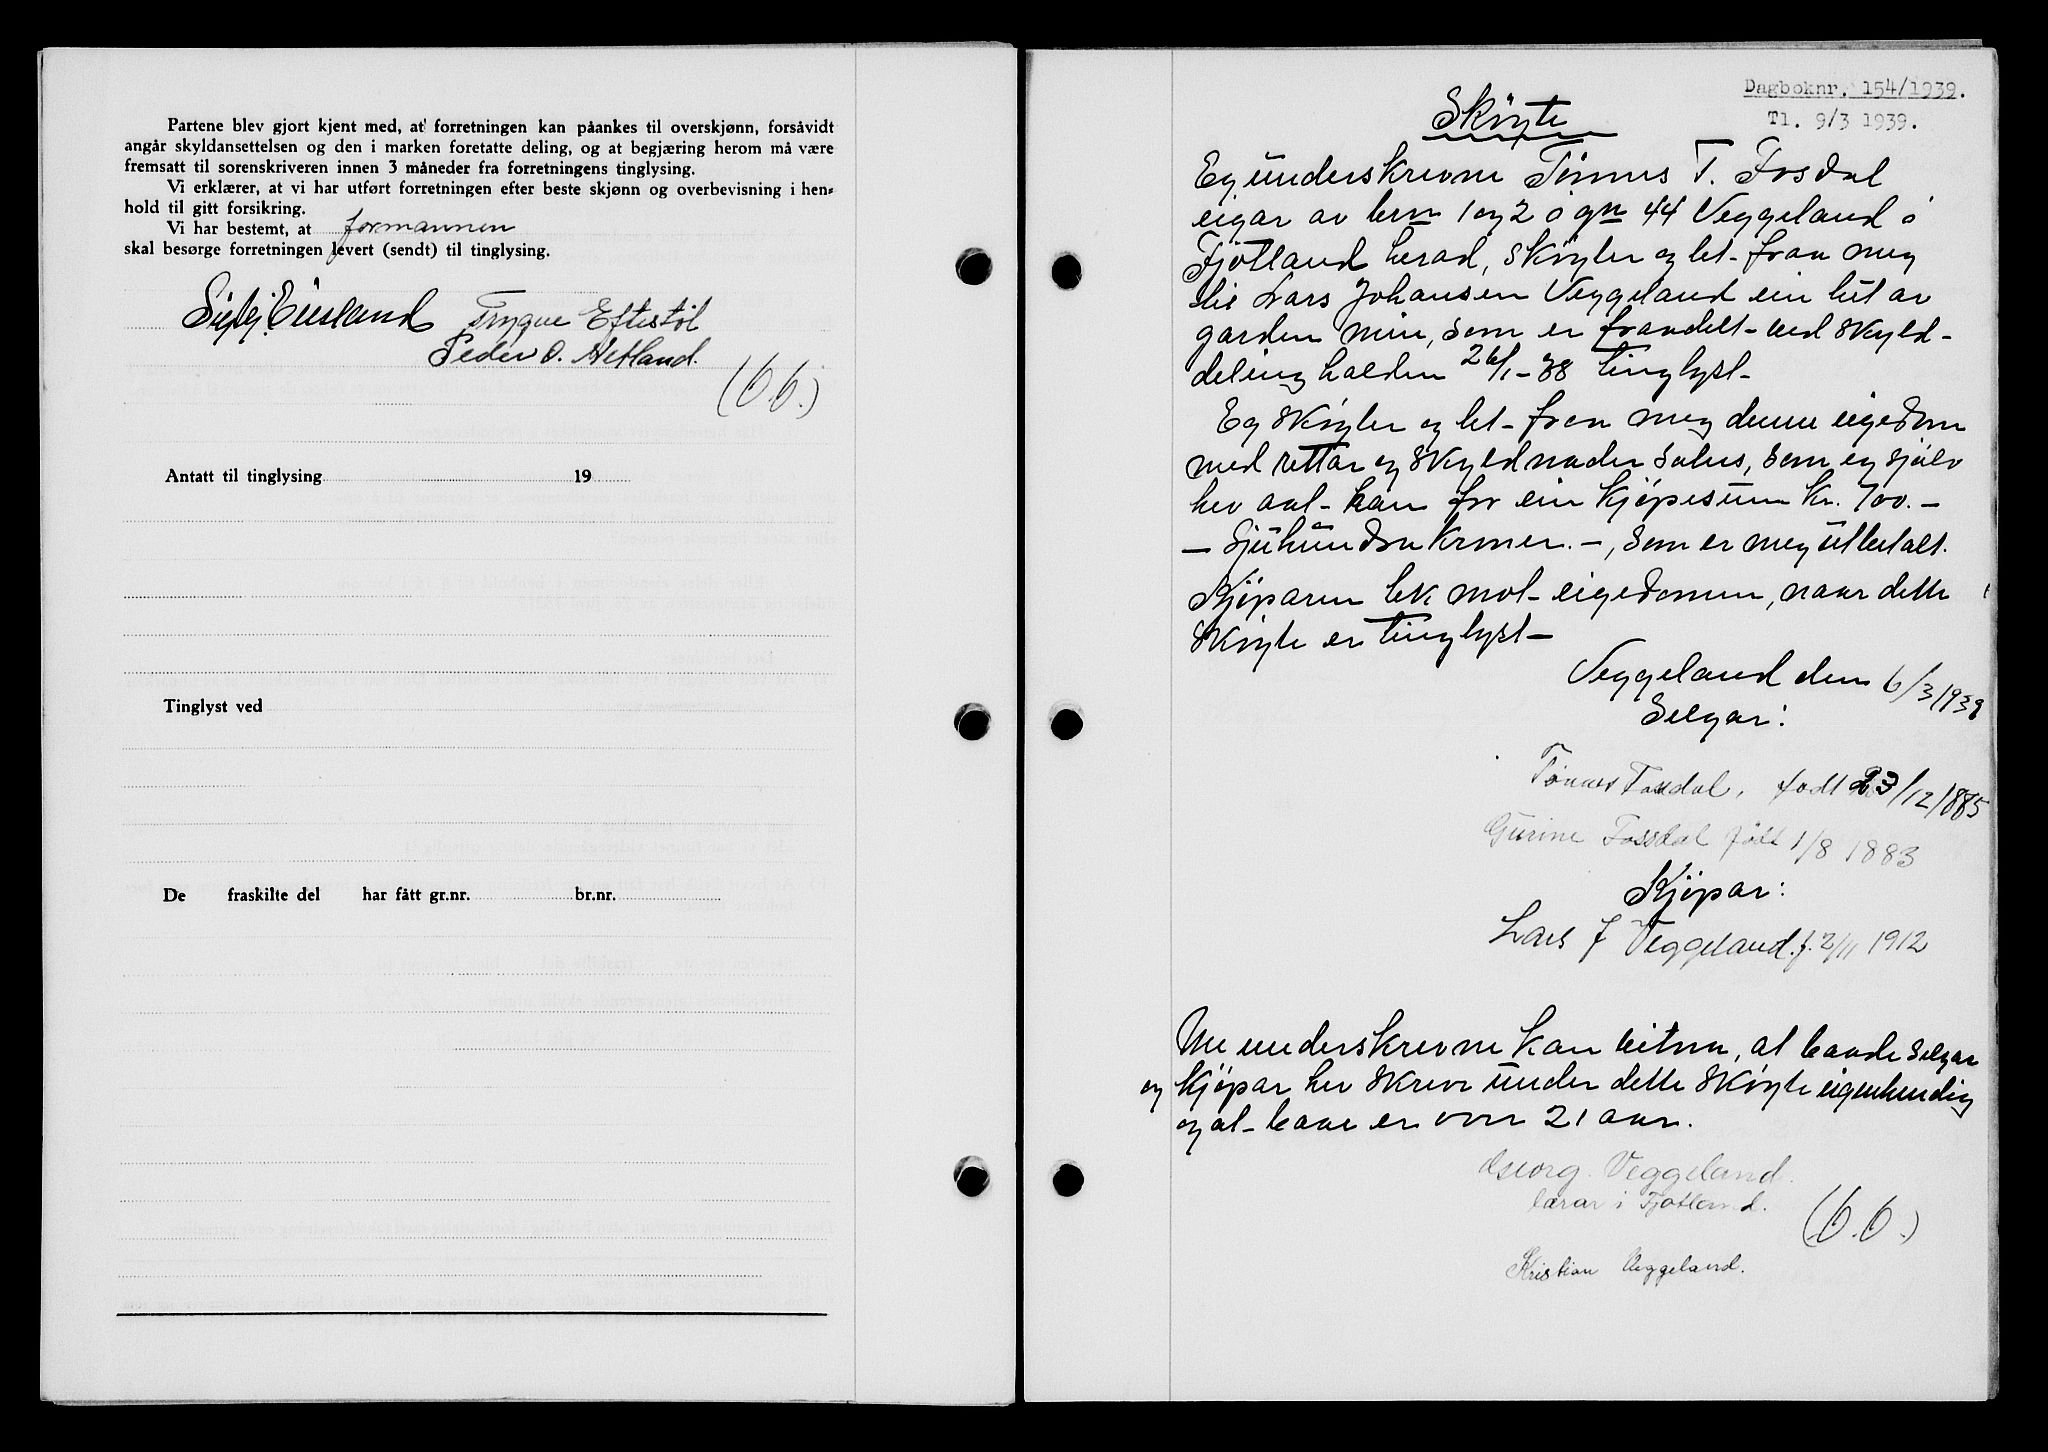 Partene blev gjort kjent med, at forretningen kan påankes til overskjønn, forsåvidt
angår skyldansettelsen og den i marken foretatte deling, og at begjæring herom må være
fremsatt til sorenskriveren innen 3 måneder fra forretningens tinglysing.
Vi erklærer, at vi har utført forretningen efter beste skjønn og overbevisning i hen-
hold til gitt forsikring.
Vi har bestemt, at formannen
skal besørge forretningen levert (sendt) til tinglysing.
Eiesland Trygve Eftestöl
Peder O. Netland.
(b.b.)
Antatt til tinglysing 19
Tinglyst ved
De fraskilte del har fått gr.nr. br.nr.
Dagboknr. 154/1939.
Tl. 9/3 1939.
Sköyte
Eg underskrevne Tönnes T. Fosdal
eigar av brn 1 og 2 i gn 44 Veggeland i
Fjötland herad, sköyter og let fraa meg
til Lars Johansen Veggeland ein lut av
garden min, som er fraadelt ved skyld-
deling halden 26/1-38 tinglyst
Eg sköyter og let fraa meg denne eigedom
med rettar og skyldnader soleis, som eg sjölv
hev aat han for ein kjöpesum kr. 700.-
- Sjuhundra kroner. -, som er meg utbetalt.
Kjöparen tek mot eigedomen, naar dette
sköyte er tinglyst
Veggeland den 6/3 1939
Selgar:
Tönnes Fosdal, født 23/12/1885
Gurine Fossdal född 1/8 1883
Kjöpar:
Lars J Veggeland. f. 2/11 1912
Me underskrevne kan vitna, at baade selgar
og kjöpar hev skreve under dette sköyte eigenhendig
og at baae er over 21 aar.
Georg Veggeland.
lærar i Fjotland.
(b.b.)
Kristian Veggeland.